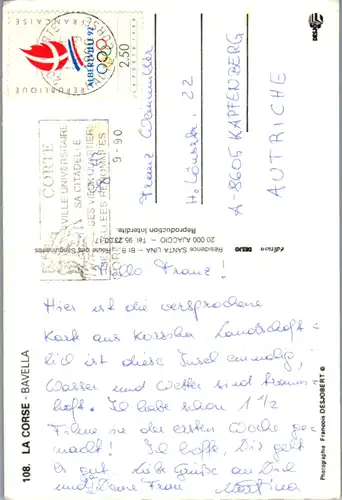 108. LA CORSE - BAVELLA
Hallo Franz!
Hier ist die versprochene
Karte aus Korsika. Landschaft-
lich ist diese Insel einmalig,
Wasser und Wetter sind traum-
haft. Ich habe schon 1 1/2
Filme in der ersten Woche ge-
macht! Ich hoffe, Dir geht
es gut. Liebe Grüße an Dich
und Deine Frau Martina
Photographe François DESJOBERT ©
édition DESJO
Résidence SANTA LINA - Bt B - Route des Sanguinaires
20 000 AJACCIO - Tél. 95
Reproduction interdite.
DESJO
RÉPUBLIQUE FRANÇAISE
ALBERTVILLE 92
2,50
CORTE
VILLE UNIVERSITAIRE
SA CITADELLE
SES VIEUX QUARTIERS
SES VALLEES RENOMMEES
9-90
Franz
22
A-8605 KAPFENBERG
AUTRICHE